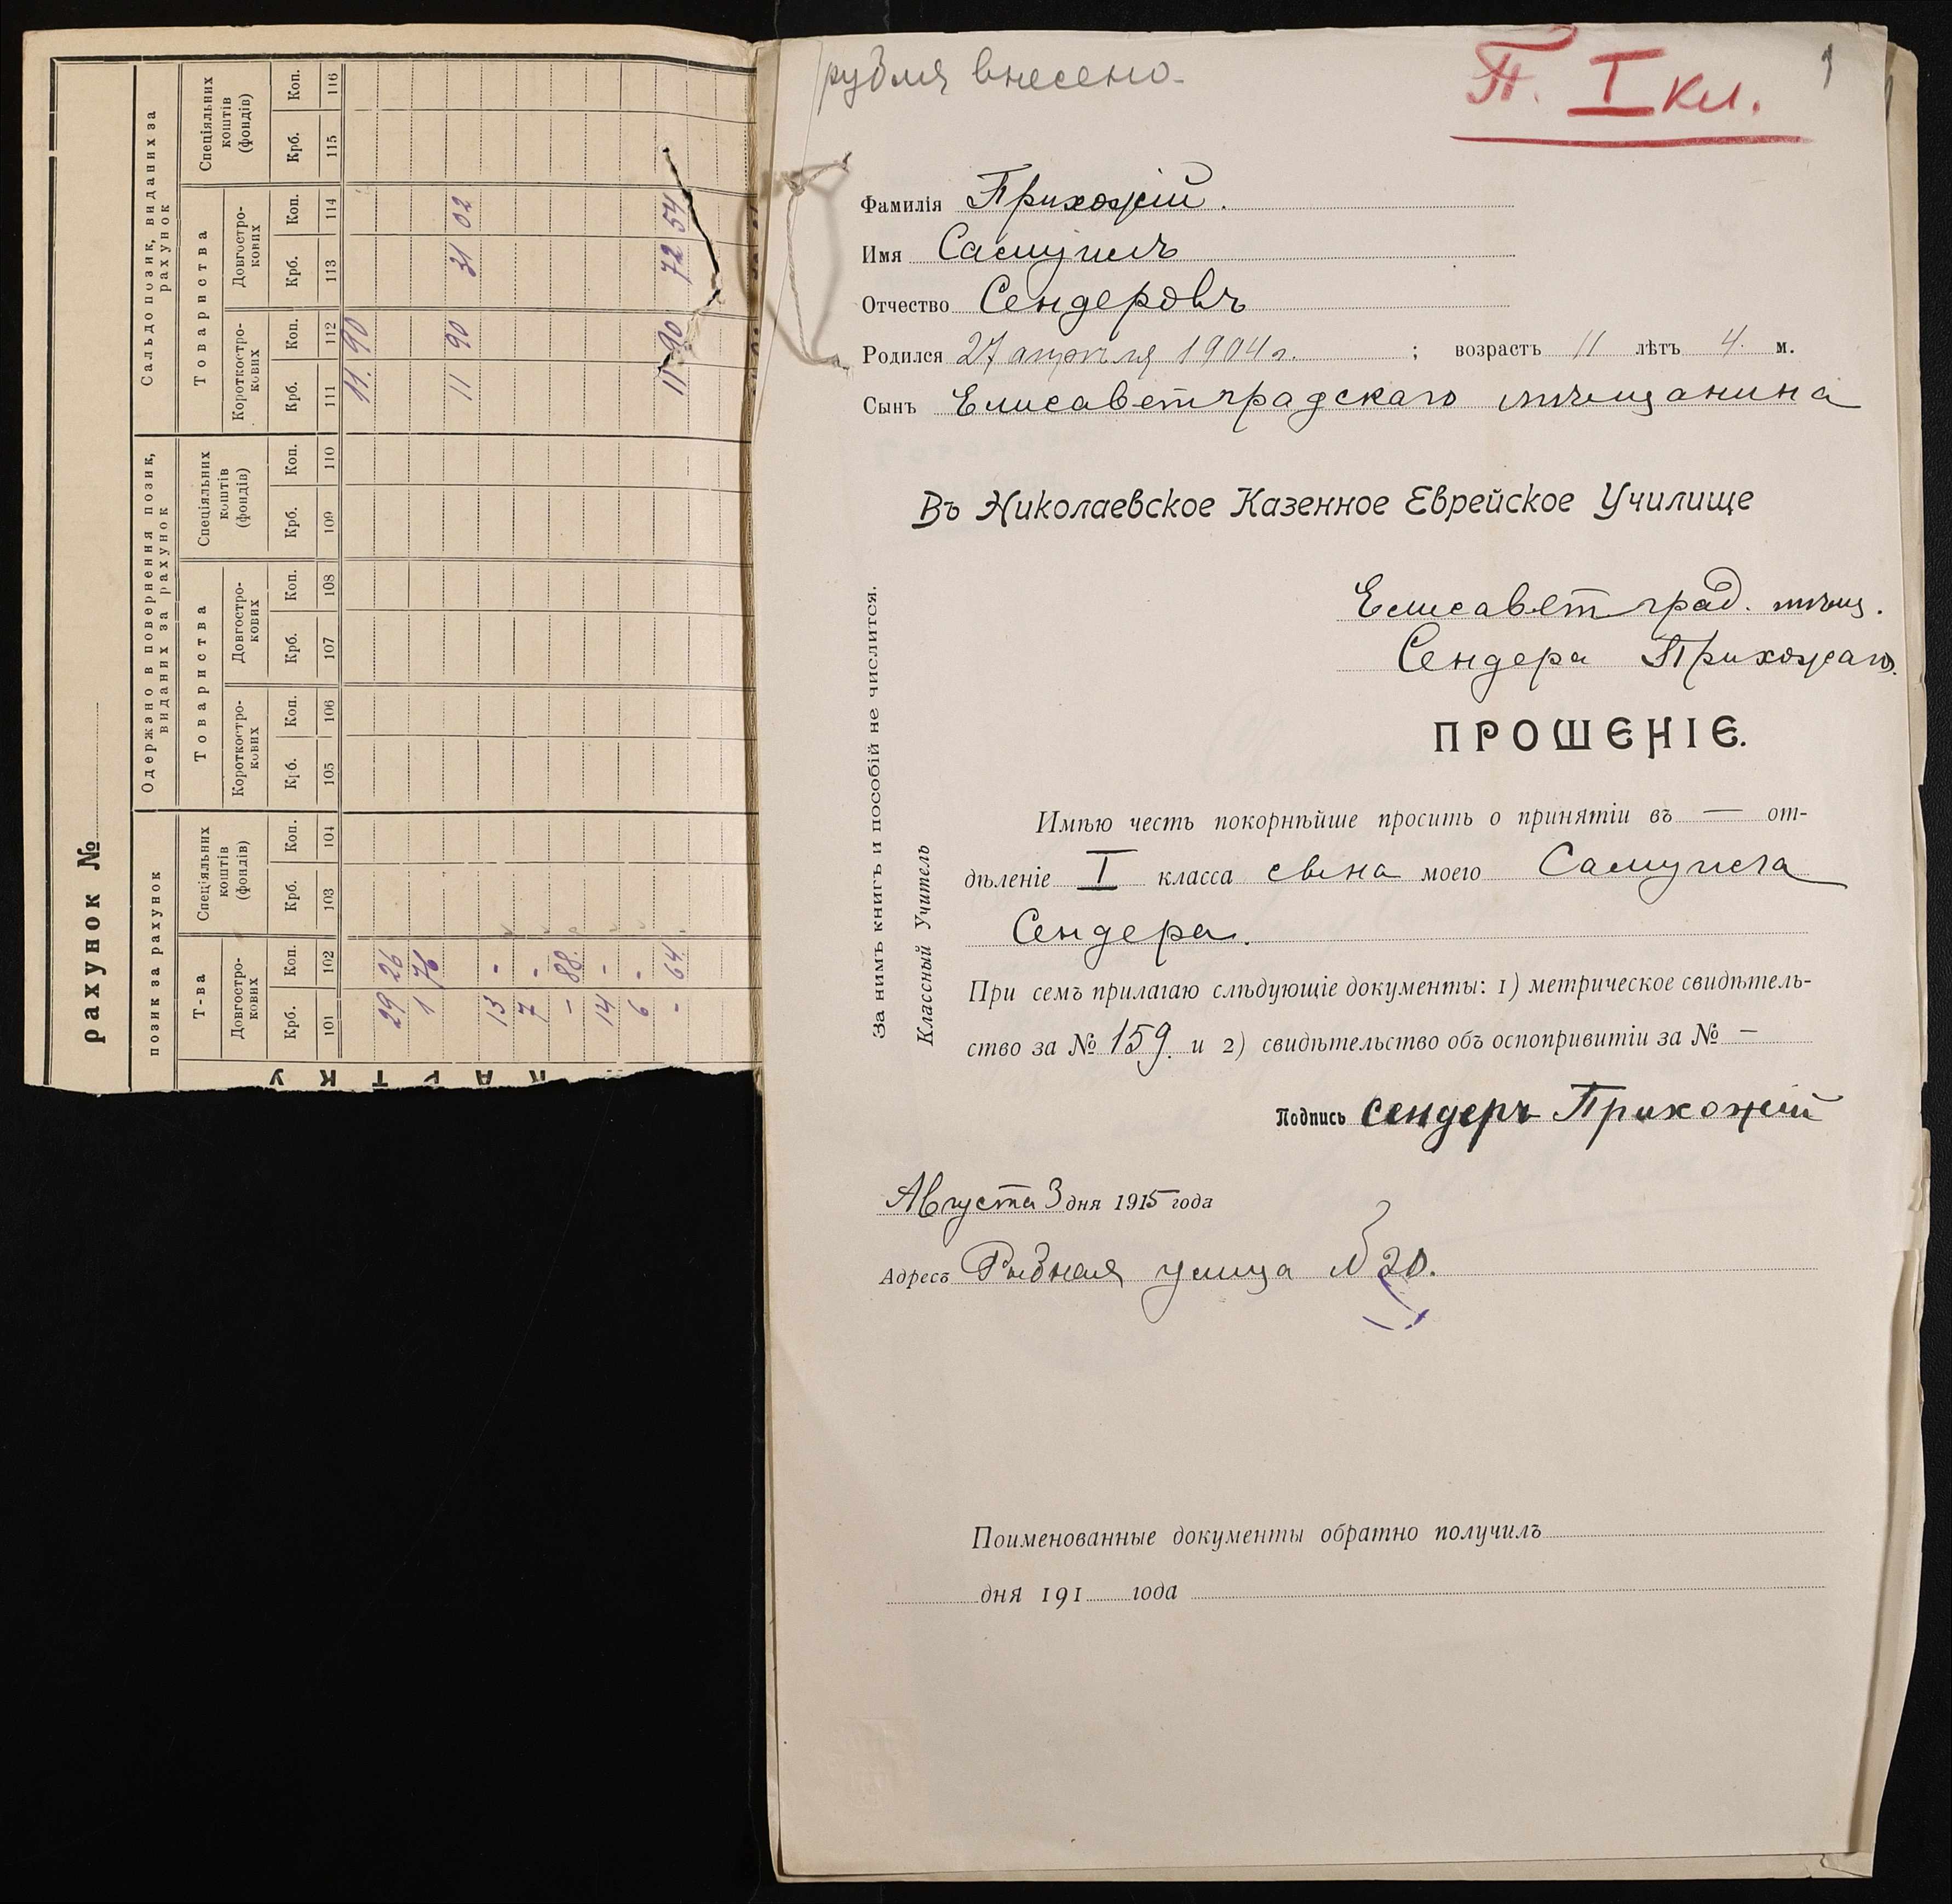 рахунок №
позик за рахунок
Одержано в повернення позик, виданих за рахунок
Сальдо позик, виданих за рахунок
Т-ва
Спеціяльних коштів (фондів)
Товариства
Спеціяльних коштів (фондів)
Товариства
Спеціяльних коштів (фондів)
Довгостро-кових
Короткостро-кових
Довгостро-кових
Короткостро-кових
Довгостро-кових
Крб. Коп. Крб. Коп. Крб. Коп. Крб. Коп. Крб. Коп. Крб. Коп. Крб. Коп. Крб. Коп.
101 102 103 104 105 106 107 108 109 110 111 112 113 114 115 116
11. 90
29 26
1 76
11 90 31 02
13 -
7 -
- 88.
14 -
6 -
- 64. 11 90 72 54
рубля внесено-
П. I кл.
1
Фамилія Прихожій.
Имя Самуилъ
Отчество Сендеровъ
Родился 27 апрѣля 1904 г. ; возрастъ 11 лѣтъ 4. м.
Сынъ Елисаветградскаго мѣщанина
Въ Николаевское Казенное Еврейское Училище
Елисаветград. мѣщ.
Сендера Прихожаго.
ПРОШЕНІЕ.
Имѣю честь покорнѣйше просить о принятіи въ — от-
дѣленіе I класса сына моего Самуила
Сендера.
При семъ прилагаю слѣдующіе документы: 1) метрическое свидѣтель-
ство за № 159. и 2) свидѣтельство объ оспопривитіи за № —
Подпись Сендеръ Прихожій
Августа 3 дня 1915 года
Адресъ Рыбная улица № 20.
За нимъ книгъ и пособій не числится.
Классный Учитель
Поименованные документы обратно получилъ
дня 191 года